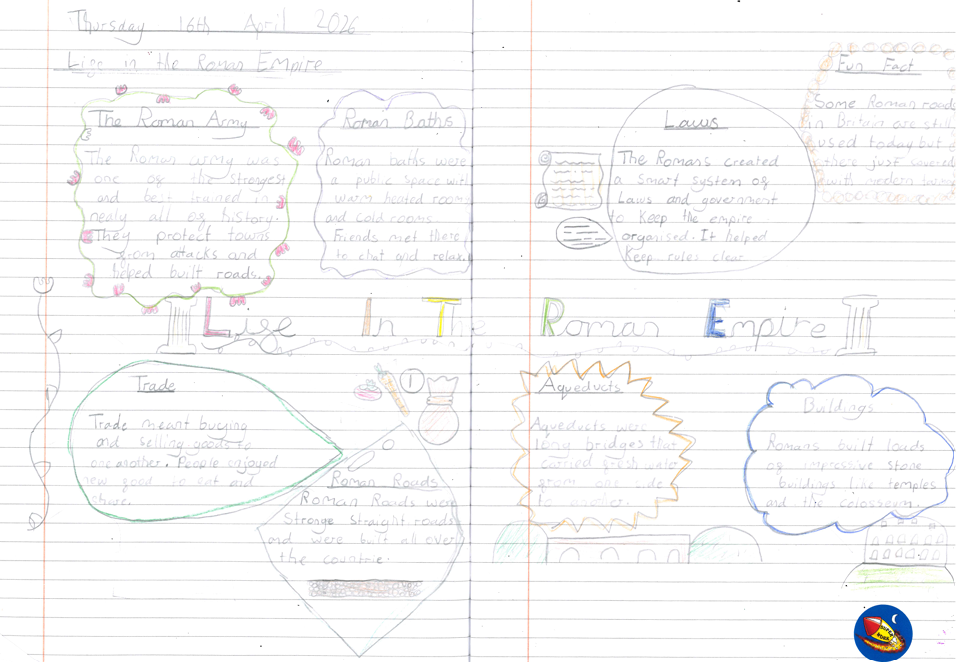 Thursday 16th April 2026
Life in the Roman Empire
The Roman Army
The Roman army was
one of the strongest
and best trained in
nealy all of history.
They protect towns
from attacks and
helped built roads.
Roman Baths
Roman baths were
a public space with
warm heated rooms
and cold rooms.
Friends met there
to chat and relax.
Laws
The Romans created
a smart system of
Laws and government
to keep the empire
organised. It helped
keep rules clear
Fun Fact
Some Roman roads
in Britain are still
used today but
there just covered
with modern
Life In The Roman Empire
Trade
Trade meant buying
and selling goods to
one another. People enjoyed
new good to eat and
share.
Roman Roads
Roman Roads were
Stronge straight roads
and were built all over
the countrie.
Aqueducts
Aqueducts were
long bridges that
carried fresh water
from one side
to another.
Buildings
Romans built loads
of impressive stone
buildings like temples
and the colosseum.